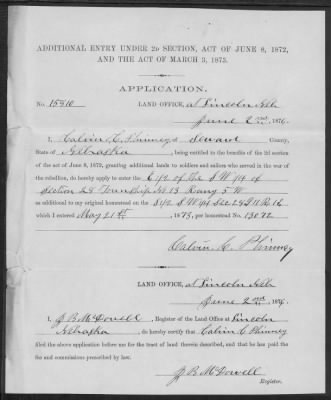 ADDITIONAL ENTRY UNDER 2D SECTION, ACT OF JUNE 8, 1872,
AND THE ACT OF MARCH 3, 1873.
APPLICATION.
No. 15910 LAND OFFICE, at Lincoln Neb
June 2nd 1876.
I, Calvin C. Phinney, Seward County,
State of Nebraska, being entitled to the benefits of the 2d section
of the act of June 8, 1872, granting additional lands to soldiers and sailors who served in the war of
the rebellion, do hereby apply to enter the E 1/2 of the S W 1/4 of
Section 28 Township No 13 Rang 5 W
as additional to my original homestead on the S 1/2 S W 1/4 Sec 24
which I entered May 21st, 1873, per homestead No. 13072
Calvin C. Phinney
LAND OFFICE, at Lincoln Neb
June 2nd 1876.
I, J B McDowell, Register of the Land Office at Lincoln
Nebraska, do hereby certify that Calvin C Phinney
filed the above application before me for the tract of land therein described, and that he has paid the
fee and commissions prescribed by law.
J B McDowell
Register.